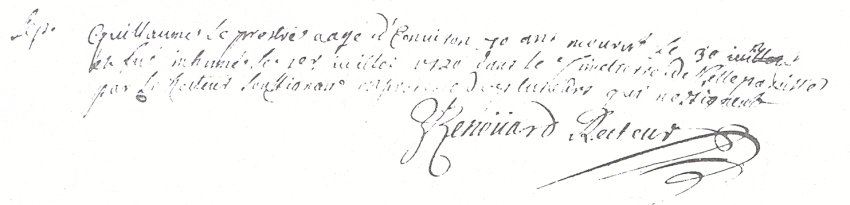 Sep.
Guillaume le prestre aagé d'Environ 70 ans mourut le 30
et fut inhumé le 1er juillet 1720 dans le Cimetierre de
par le Recteur soussignant en presence de plusieurs qui ne signent
Renoüard Recteur